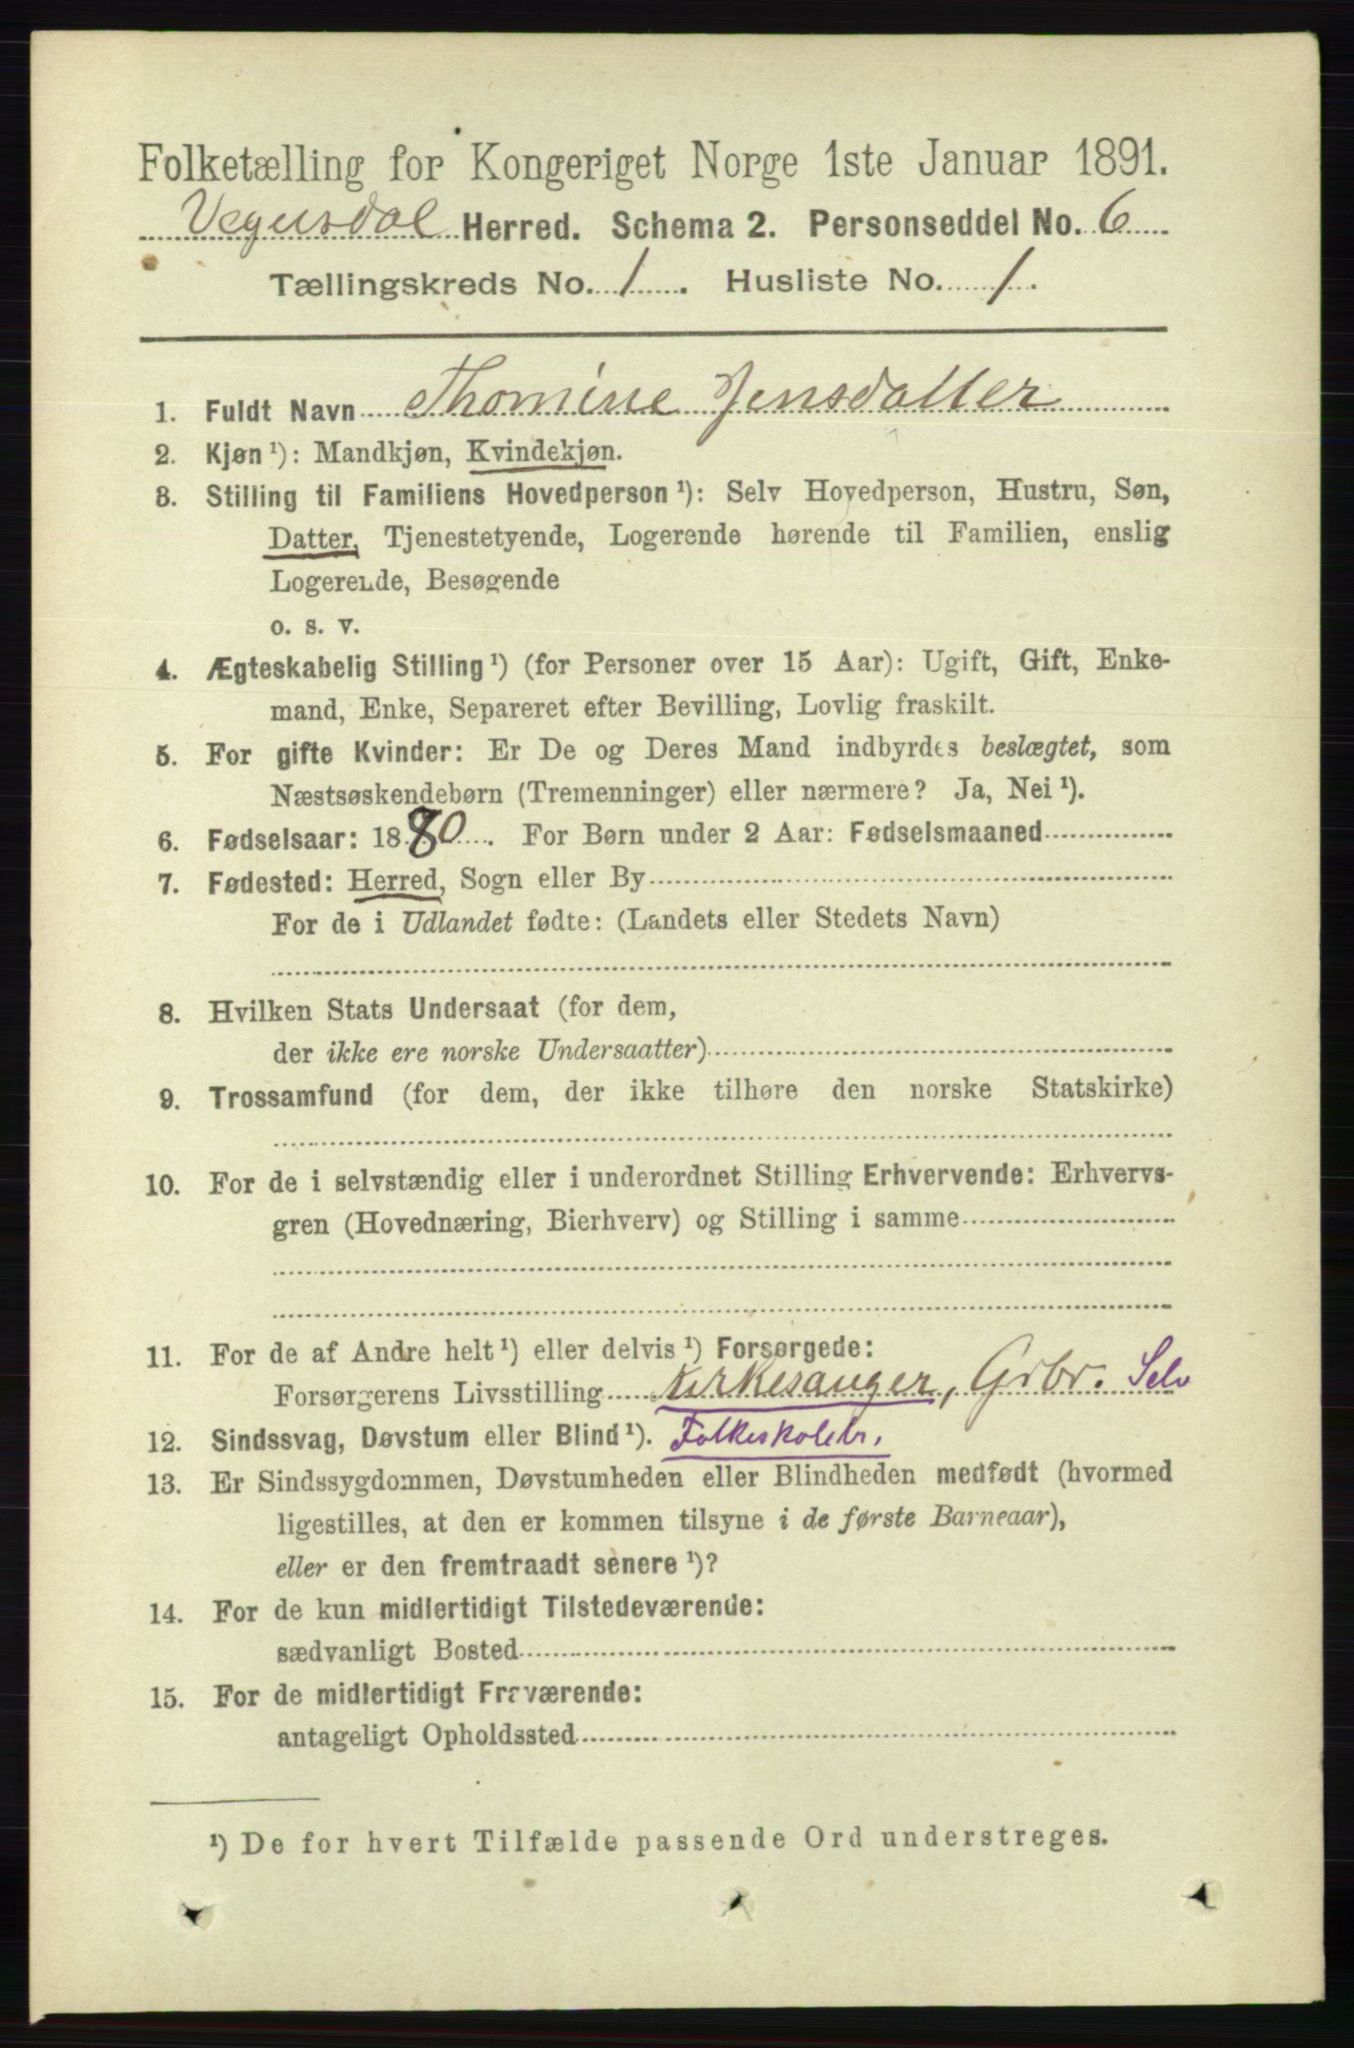 Folketælling for Kongeriget Norge 1ste Januar 1891.
Vegusdal Herred. Schema 2. Personseddel No. 6
Tællingskreds No. 1. Husliste No. 1.
1. Fuldt Navn Thomine Jensdatter
2. Kjøn ¹): Mandkjøn, Kvindekjøn.
3. Stilling til Familiens Hovedperson ¹): Selv Hovedperson, Hustru, Søn,
Datter, Tjenestetyende, Logerende hørende til Familien, enslig
Logerende, Besøgende
o. s. v.
4. Ægteskabelig Stilling ¹) (for Personer over 15 Aar): Ugift, Gift, Enke-
mand, Enke, Separeret efter Bevilling, Lovlig fraskilt.
5. For gifte Kvinder: Er De og Deres Mand indbyrdes beslægtet, som
Næstsøskendebørn (Tremenninger) eller nærmere? Ja, Nei ¹).
6. Fødselsaar: 1880. For Børn under 2 Aar: Fødselsmaaned
7. Fødested: Herred, Sogn eller By
For de i Udlandet fødte: (Landets eller Stedets Navn)
8. Hvilken Stats Undersaat (for dem,
der ikke ere norske Undersaatter)
9. Trossamfund (for dem, der ikke tilhøre den norske Statskirke)
10. For de i selvstændig eller i underordnet Stilling Erhvervende: Erhvervs-
gren (Hovednæring, Bierhverv) og Stilling i samme
11. For de af Andre helt ¹) eller delvis ¹) Forsørgede:
Forsørgerens Livsstilling Kirkesanger, Grbr. Selv
12. Sindssvag, Døvstum eller Blind ¹). Folkeskolelr.
13. Er Sindssygdommen, Døvstumheden eller Blindheden medfødt (hvormed
ligestilles, at den er kommen tilsyne i de første Barneaar),
eller er den fremtraadt senere ¹)?
14. For de kun midlertidigt Tilstedeværende:
sædvanligt Bosted
15. For de midlertidigt Fraværende:
antageligt Opholdssted
¹) De for hvert Tilfælde passende Ord understreges.